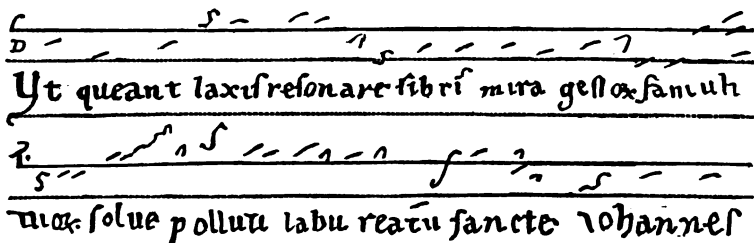 C
D
Vt queant laxiſ reſonare fibriſ mira geſtoꝝ famuli
F
tuoꝝ. ſolue polluti labii reatū ſancte iohanneſ